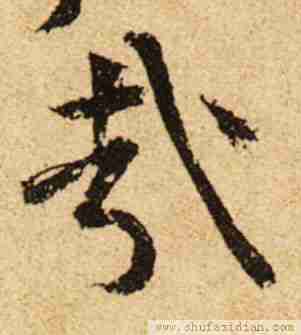 哉
www.shufazidian.com